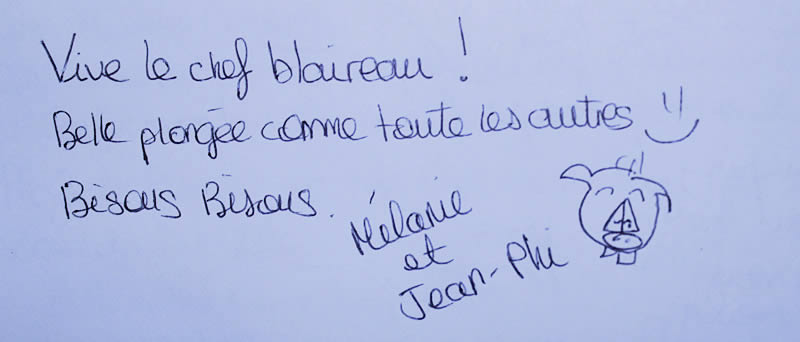 Vive le chef blaireau !
Belle plongée comme toute les autres
Bisous Bisous.
Mélanie
et
Jean-Phi